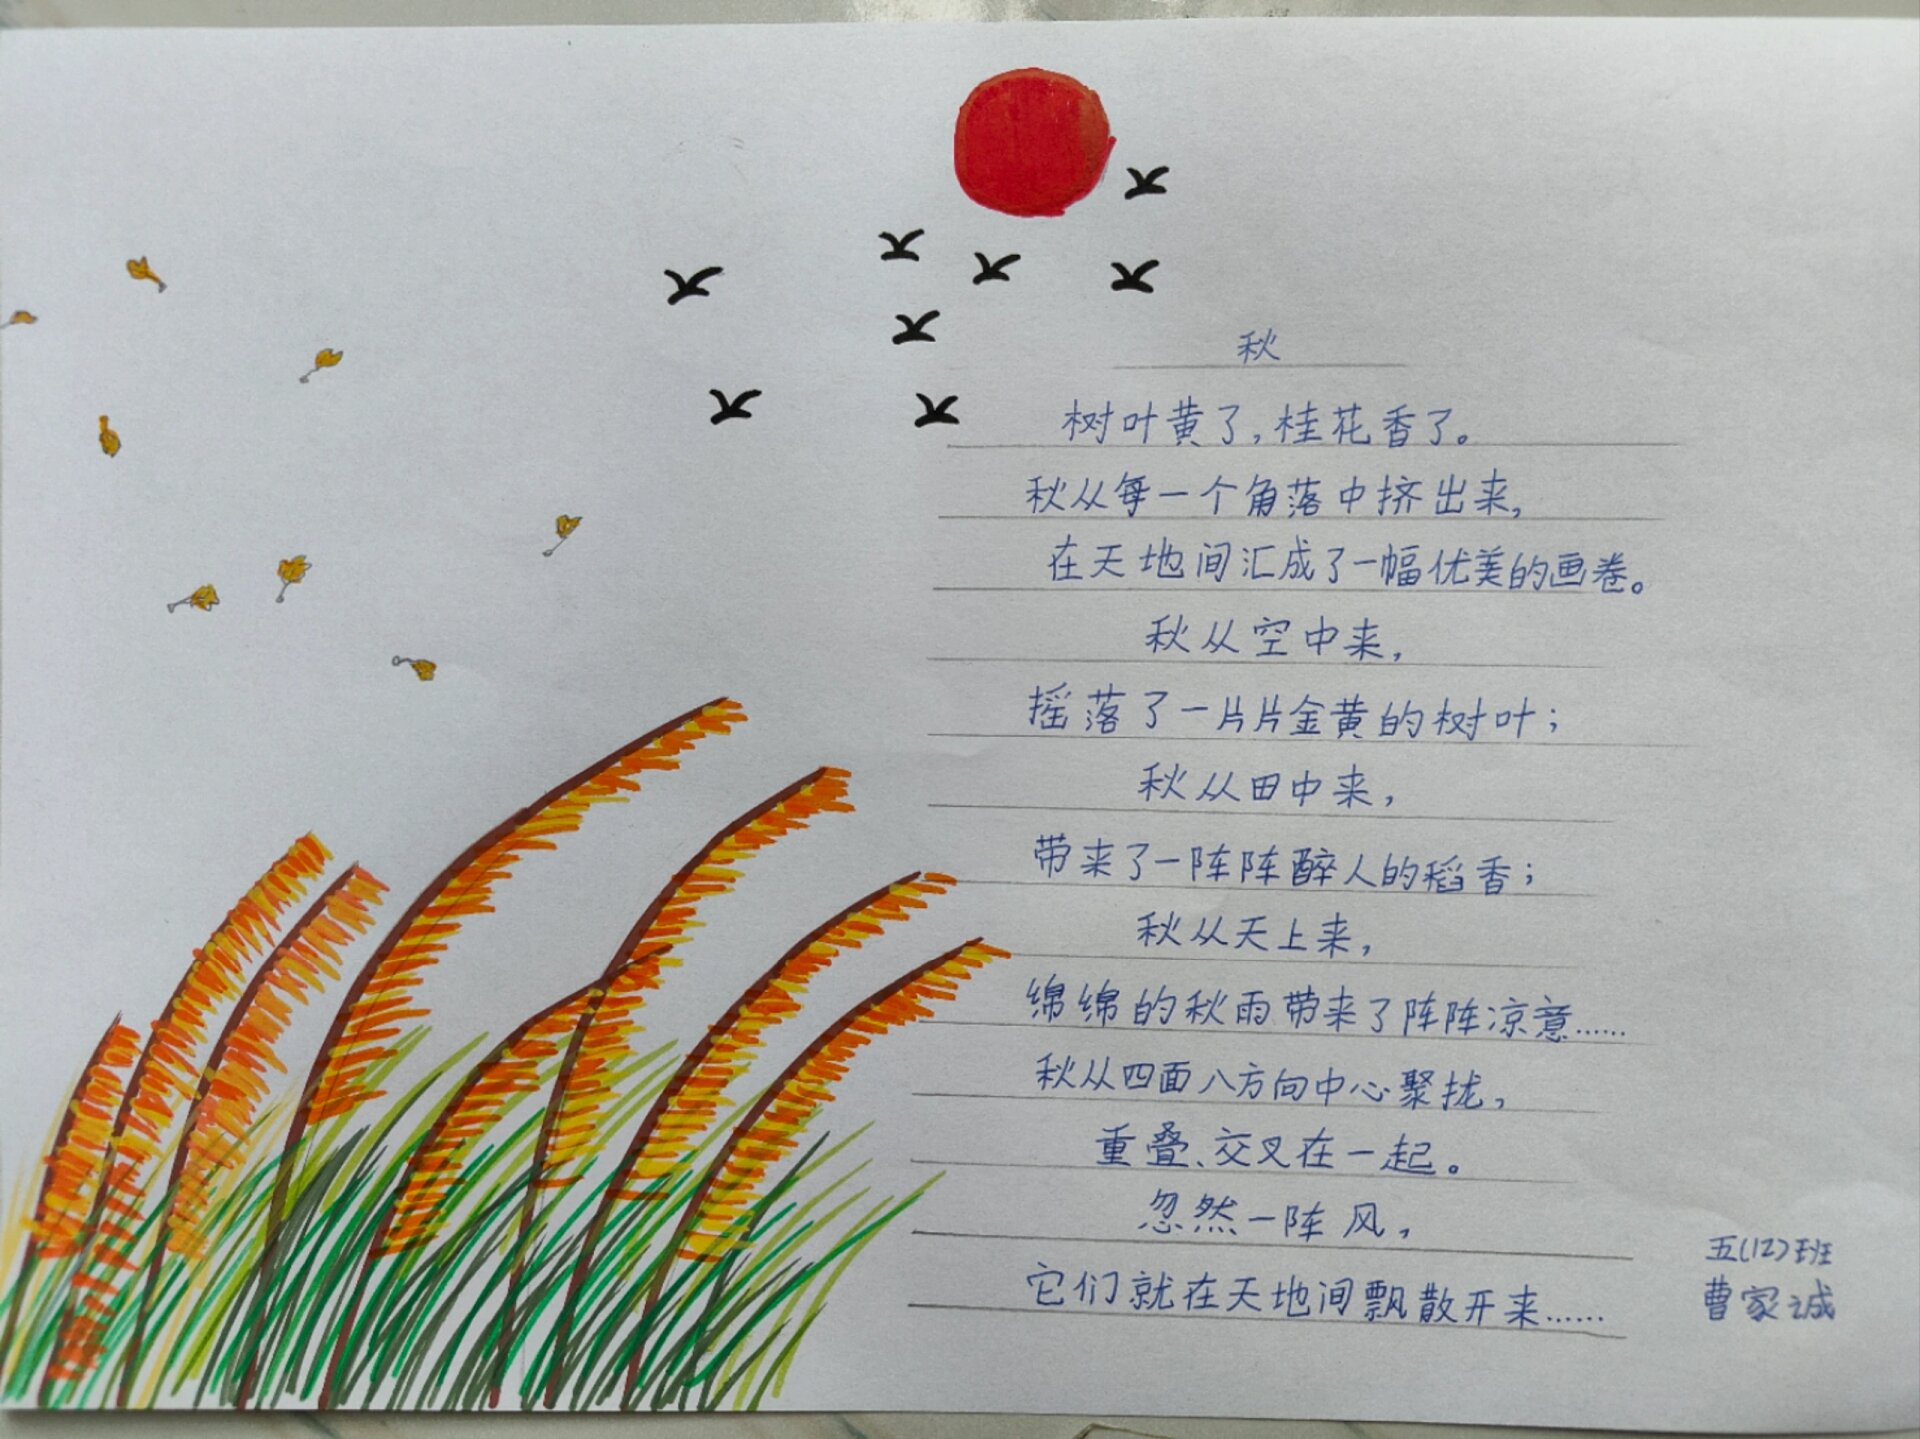 秋
树叶黄了，桂花香了。
秋从每一个角落中挤出来，
在天地间汇成了一幅优美的画卷。
秋从空中来，
摇落了一片片金黄的树叶；
秋从田中来，
带来了一阵阵醉人的稻香；
秋从天上来，
绵绵的秋雨带来了阵阵凉意……
秋从四面八方向中心聚拢，
重叠、交叉在一起。
忽然一阵风，
它们就在天地间飘散开来……
五(12)班
曹家诚